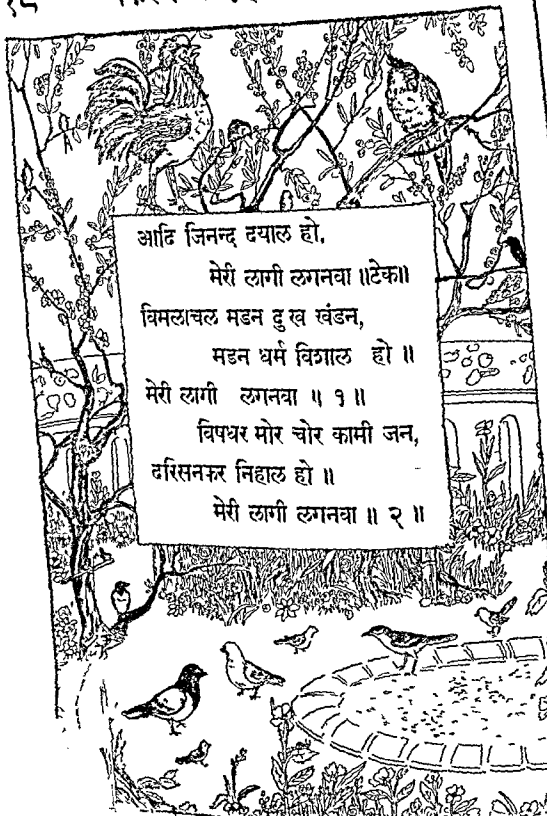 १८
आदि जिनन्द दयाल हो,
मेरी लागी लगनवा ॥टेक॥
विमलाचल मडन दु ख खंडन,
मडन धर्म विशाल हो ॥
मेरी लागी लगनवा ॥ १ ॥
विषधर मोर चोर कामी जन,
दरिसनकर निहाल हो ॥
मेरी लागी लगनवा ॥ २ ॥